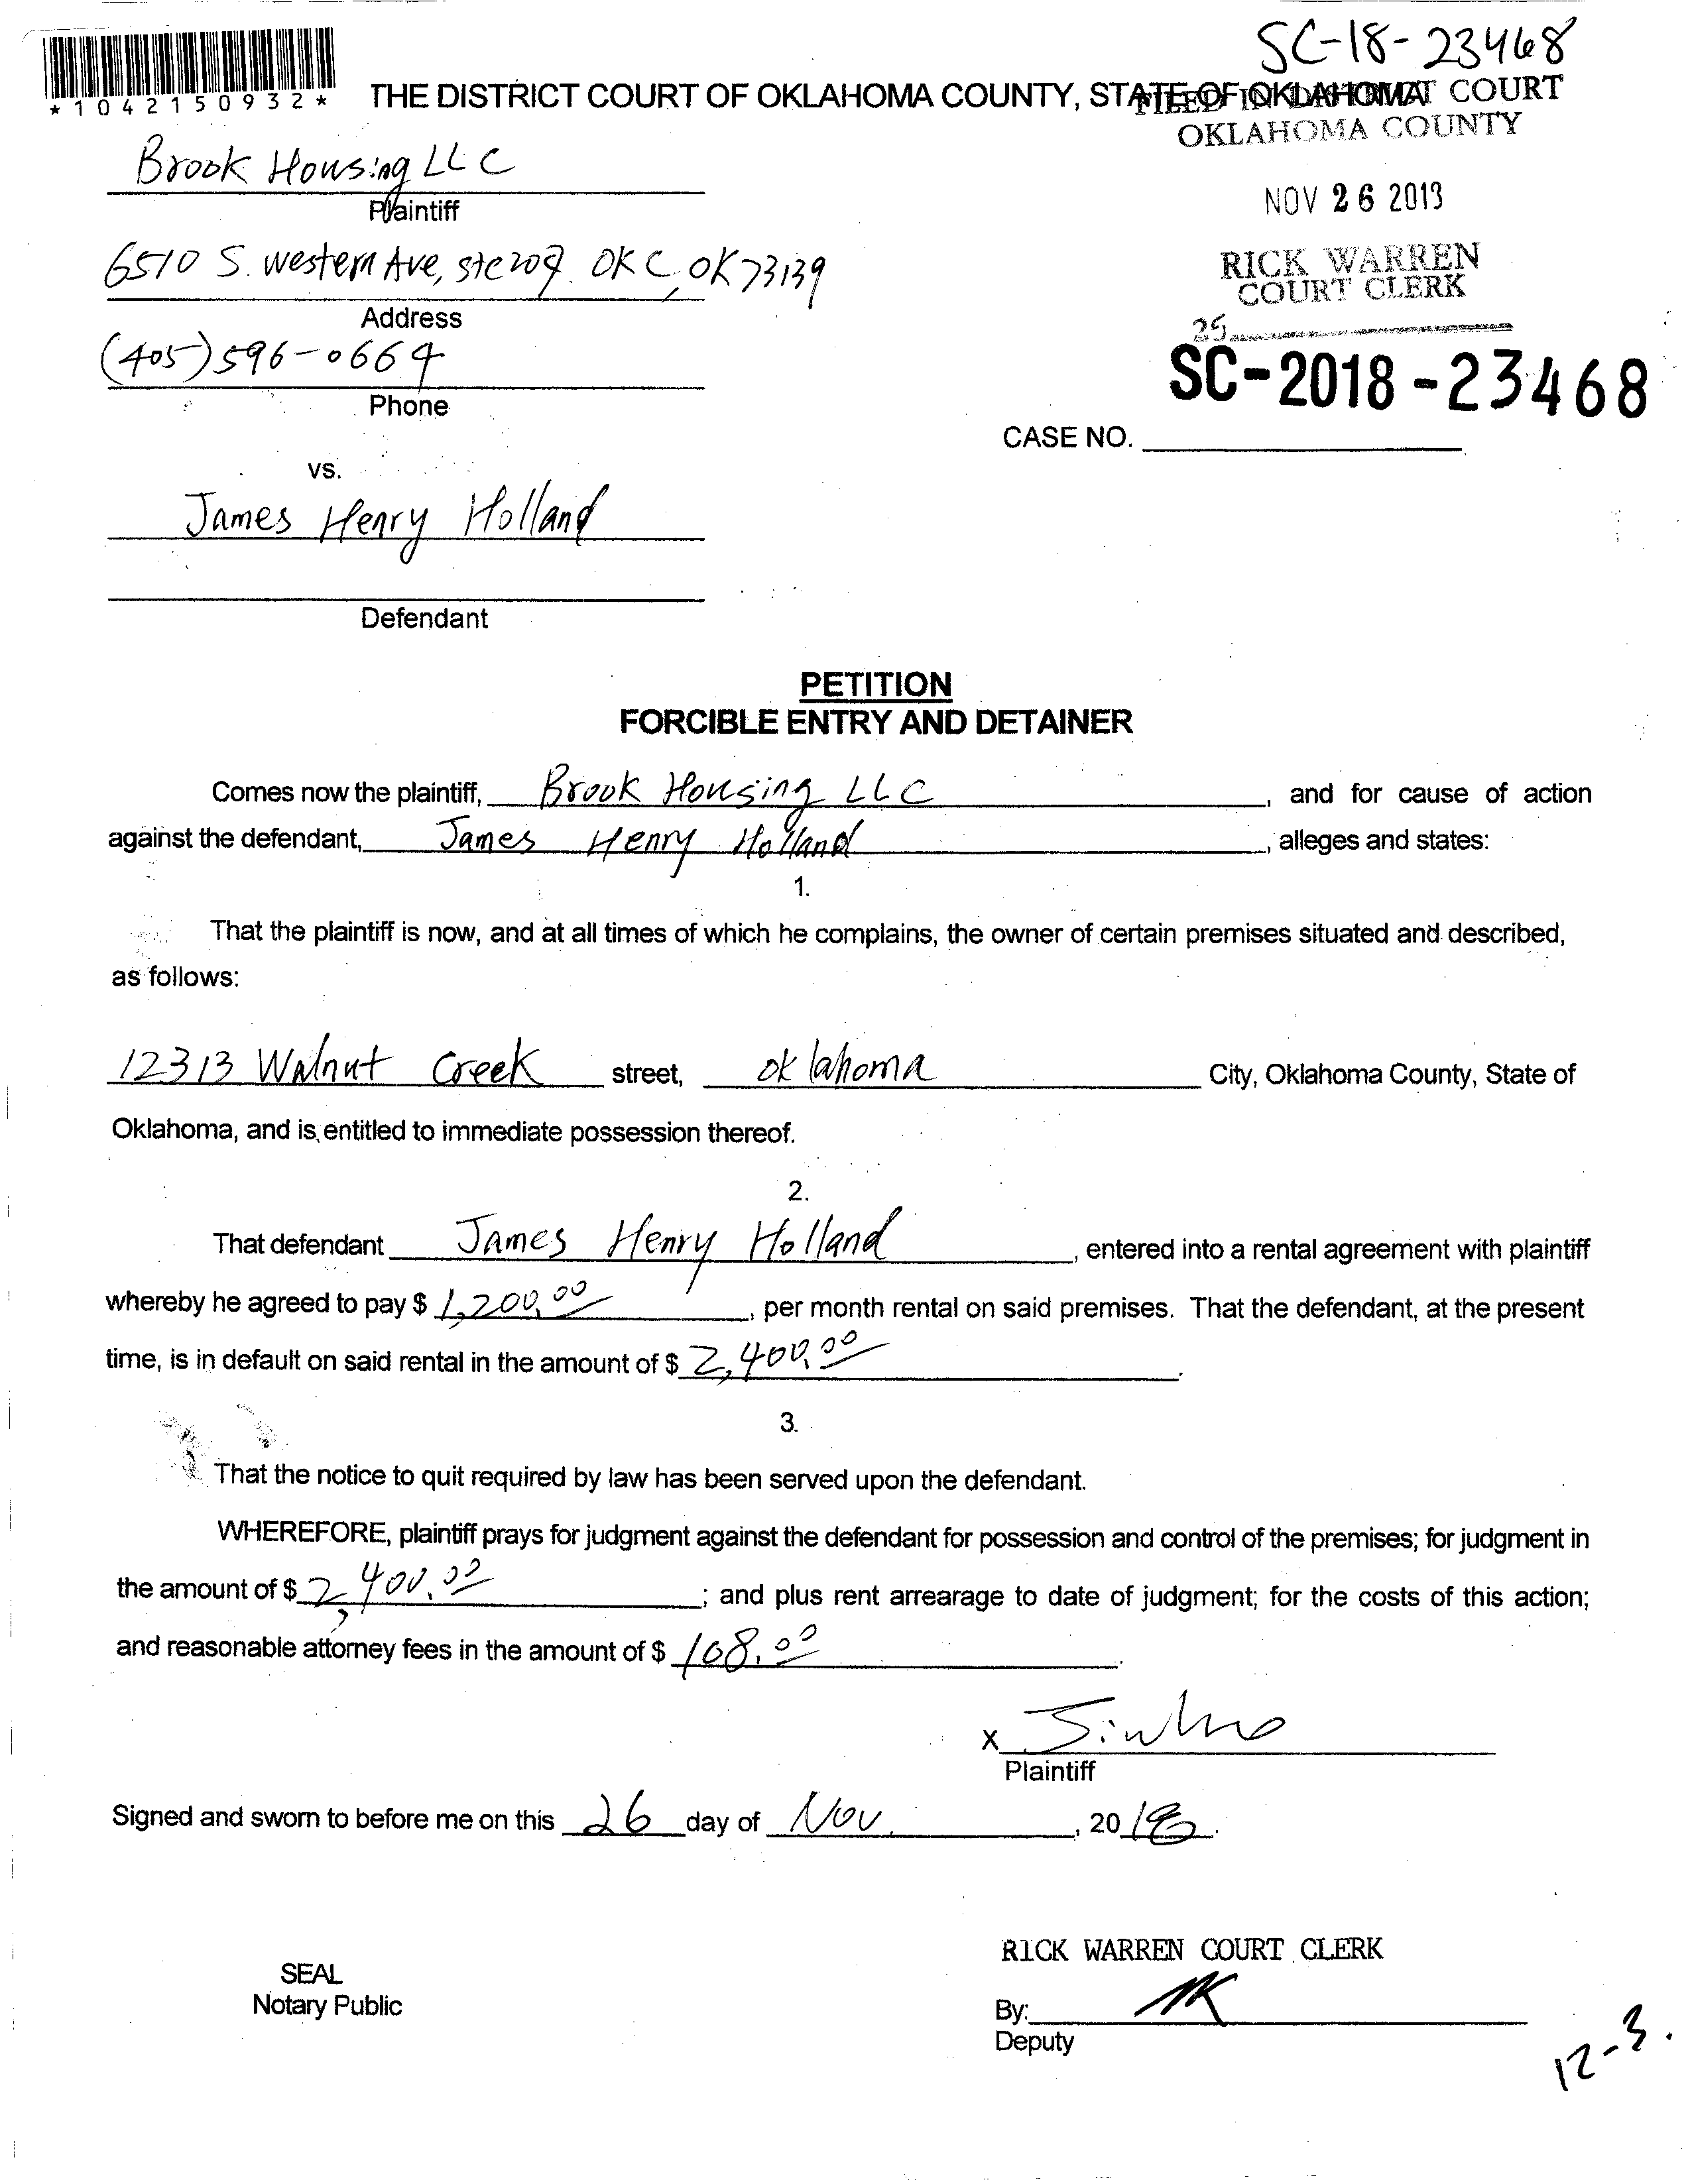 SC-18-23468
*1042150932*
THE DISTRICT COURT OF OKLAHOMA COUNTY, STATE OF OKLAHOMA
FILED IN DISTRICT COURT
OKLAHOMA COUNTY
Brook Housing LLC
Plaintiff
NOV 26 2018
6510 S. western Ave, ste 209. OKC, OK 73139
Address
RICK WARREN
COURT CLERK
25
(405) 596-0664
Phone
SC-2018-23468
CASE NO.
vs.
James Henry Holland
Defendant
PETITION
FORCIBLE ENTRY AND DETAINER
Comes now the plaintiff, Brook Housing LLC, and for cause of action
against the defendant, James Henry Holland, alleges and states:
1.
That the plaintiff is now, and at all times of which he complains, the owner of certain premises situated and described,
as follows:
12313 Walnut Creek street, oklahoma City, Oklahoma County, State of
Oklahoma, and is entitled to immediate possession thereof.
2.
That defendant James Henry Holland, entered into a rental agreement with plaintiff
whereby he agreed to pay $ 1,200.00, per month rental on said premises. That the defendant, at the present
time, is in default on said rental in the amount of $ 2,400.00.
3.
That the notice to quit required by law has been served upon the defendant.
WHEREFORE, plaintiff prays for judgment against the defendant for possession and control of the premises; for judgment in
the amount of $ 2,400.00; and plus rent arrearage to date of judgment; for the costs of this action;
and reasonable attorney fees in the amount of $ 108.00.
X
Plaintiff
Signed and sworn to before me on this 26 day of Nov., 2018.
RICK WARREN COURT CLERK
SEAL
Notary Public
By:
Deputy
12-3.